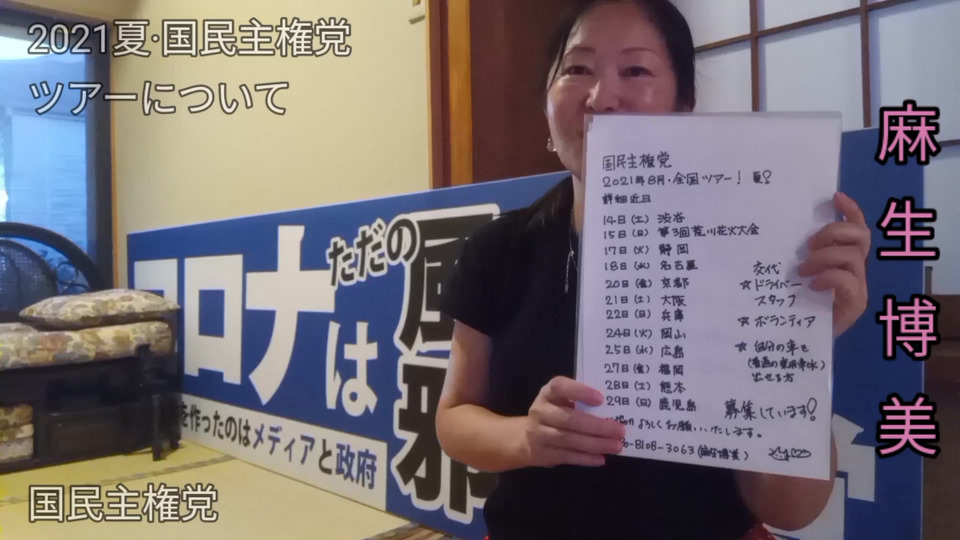 2021夏・国民主権党
ツアーについて
麻生博美
コロナは
ただの風邪
を作ったのはメディアと政府
国民主権党
2021年8月・全国ツアー！夏！
詳細近日
14日(土) 渋谷
15日(日) 第3回荒川花火大会
17日(火) 静岡
18日(水) 名古屋
20日(金) 京都
21日(土) 大阪
22日(日) 兵庫
24日(火) 岡山
25日(水) 広島
27日(金) 福岡
28日(土) 熊本
29日(日) 鹿児島
交代
☆ドライバー
スタッフ
☆ボランティア
☆自分の車を
出せる方
募集しています！
よろしくお願いいたします。
-8108-3063
国民主権党